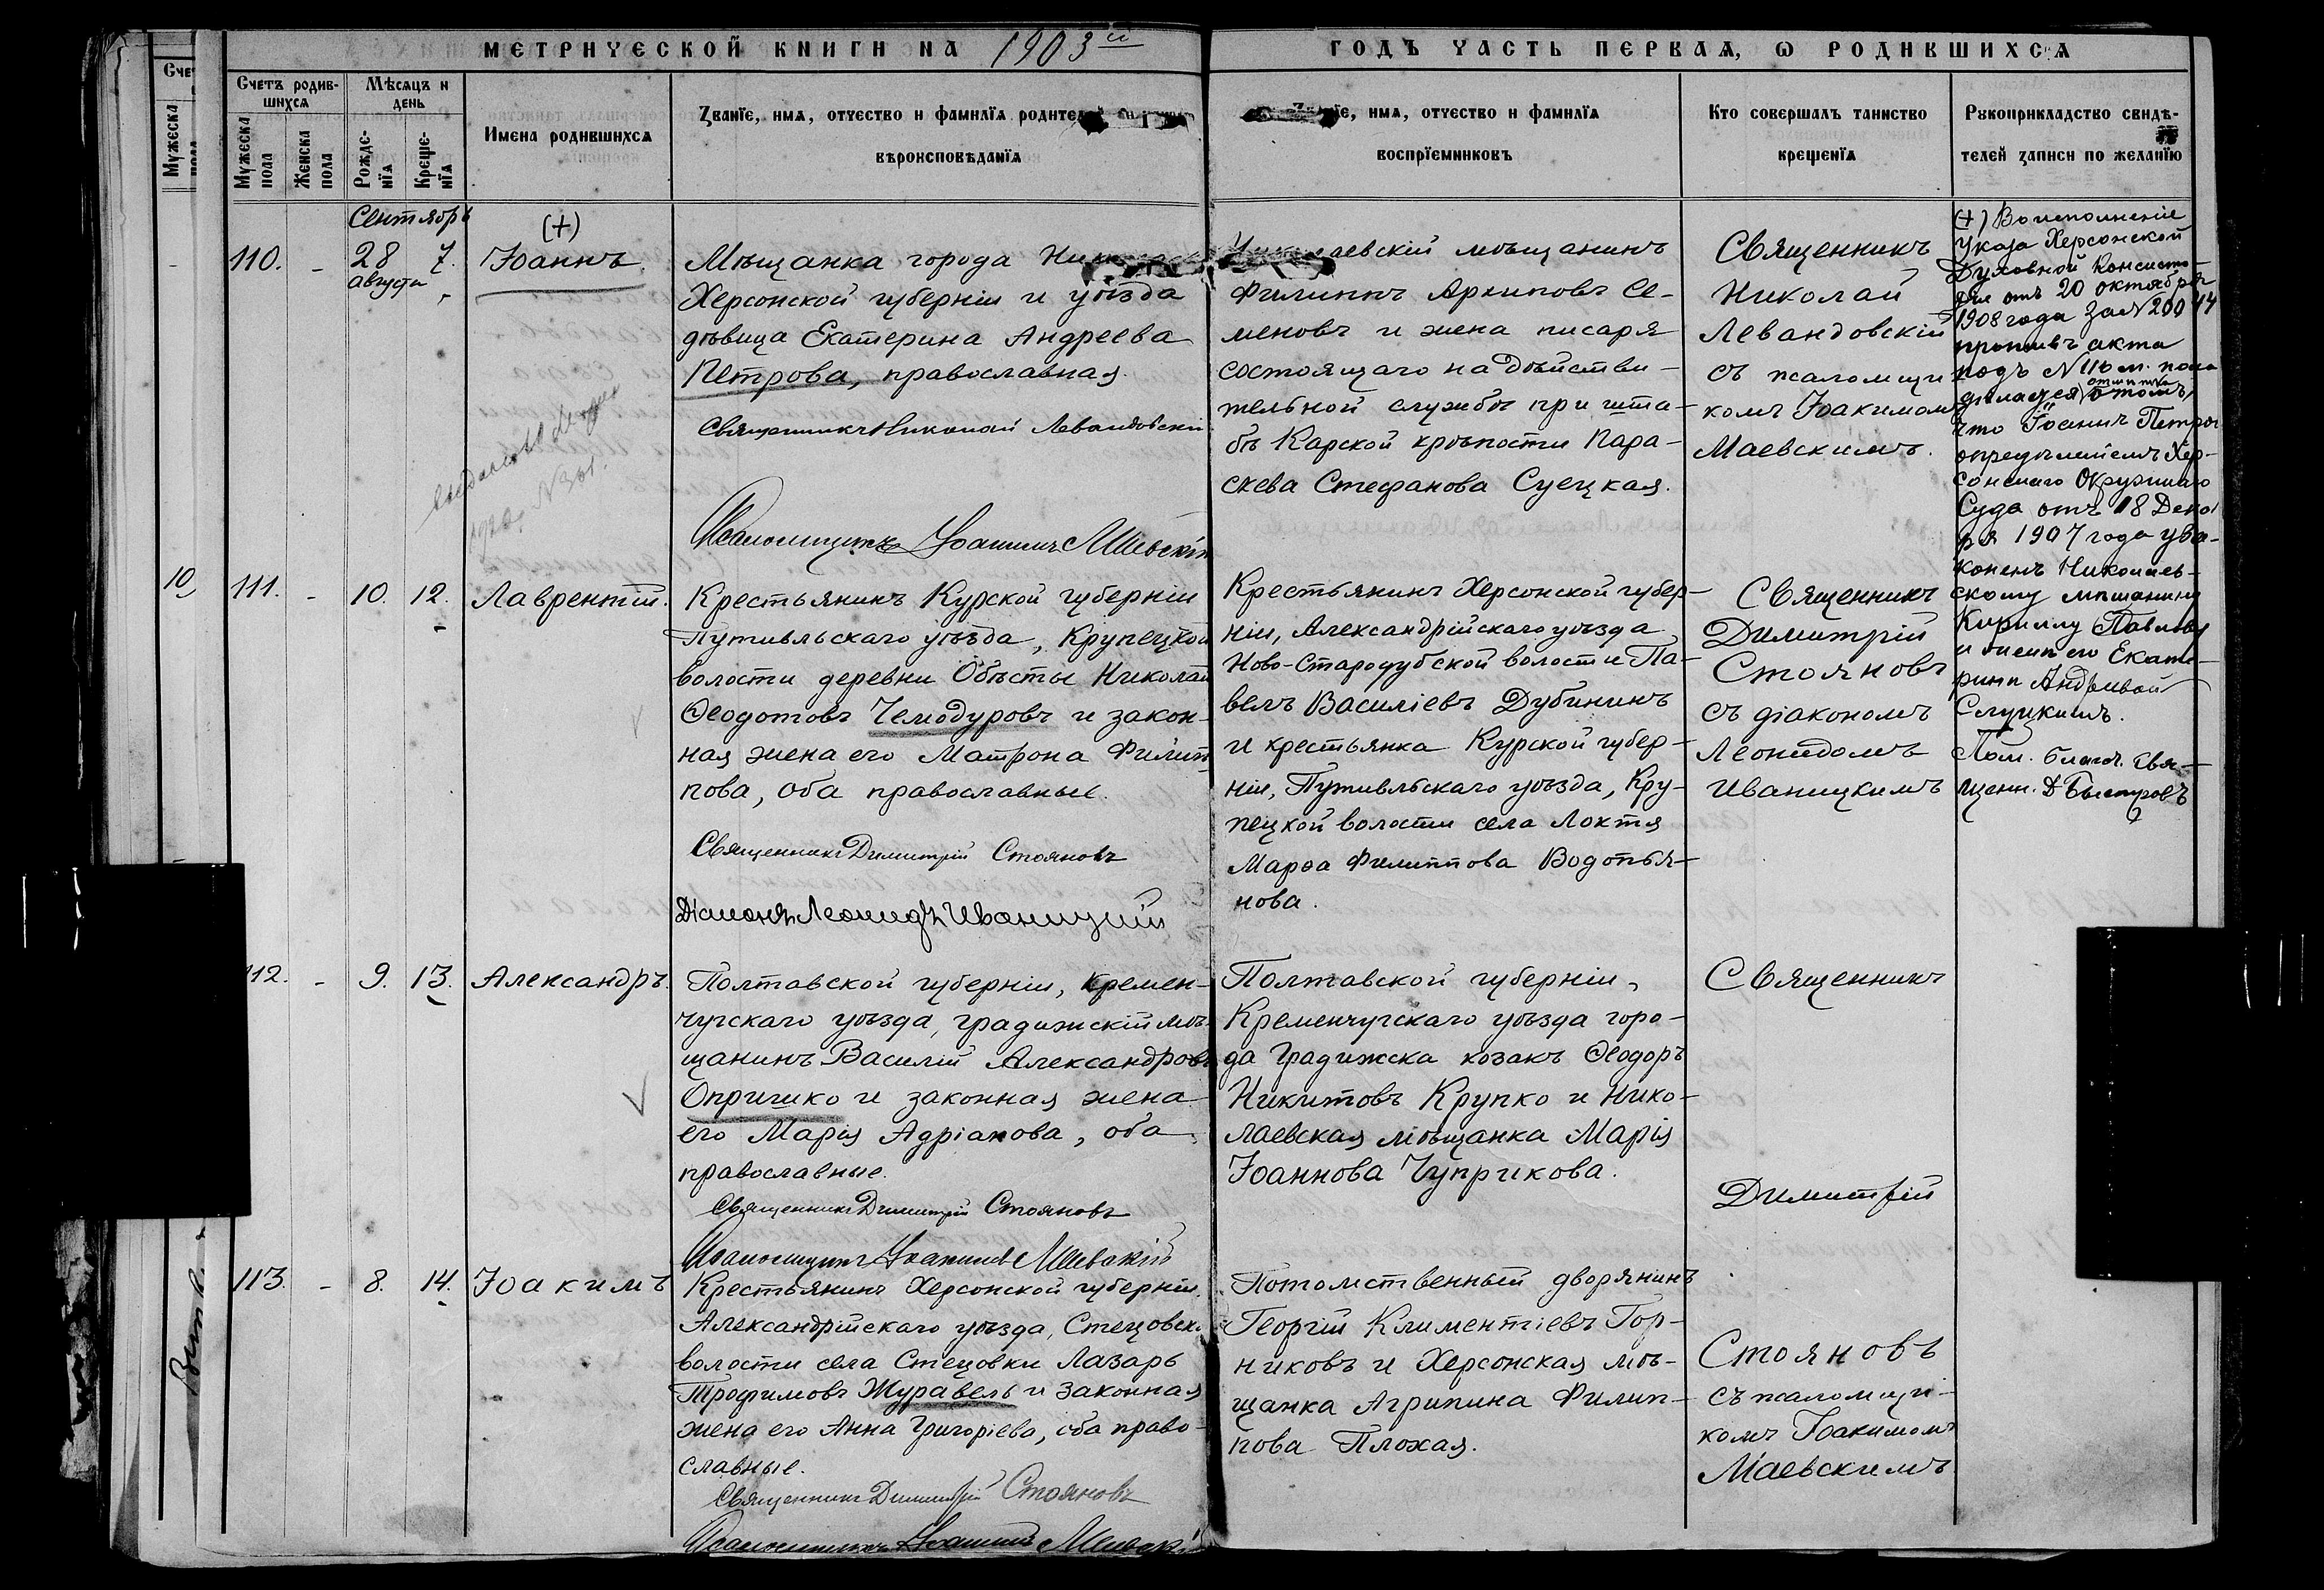 МЕТРИЧЕСКОЙ КНИГИ НА 1903 й
ГОДЪ ЧАСТЬ ПЕРВАЯ, Ѡ РОДИВШИХСЯ
Счетъ родив-
шихся
Мужеска
пола
Женска
пола
Мѣсяцъ и
день
Рожде-
нїя
Креще-
нїя
Имена родившихся
Званїе, имя, отчество и фамилїя родителей
вѣроисповѣданїя
имя, отчество и фамилїя
воспрїемниковъ
Кто совершалъ таинство
крещенїя
Рукоприкладство свидѣ-
телей записи по желанїю
Сентябрь
110. - 28 7.
августа
(+)
Іоаннъ.
Мѣщанка города
Херсонской губерніи и уѣзда
дѣвица Екатерина Андреева
Петрова, православная.
Священникъ Николай Левандовскій
Псаломщикъ Іоакимъ Маевскій
Николаевскій мѣщанинъ
Филиппъ Архиповъ Се-
меновъ и жена писаря
состоящаго на дѣйстви-
тельной службѣ при шта-
бѣ Карской крѣпости Пара-
скева Стефанова Суецкая.
Священникъ
Николай
Левандовскій
съ псаломщи-
комъ Іоакимомъ
Маевскимъ.
(+) Во исполненіе
указа Херсонской
Духовной Консисто-
ріи отъ 20 октября
1908 года за № 20044
противъ акта
подъ № 110 м. пола
дѣлается отмѣтка о томъ,
что Іоаннъ Петровъ
опредѣленіемъ Хер-
сонскаго Окружнаго
Суда отъ 18 Декаб
ря 1907 года усы-
новленъ Николаев-
скому мѣщанину
Кириллу Павлову
и женѣ его Екате-
ринѣ Андреевой
Слуцкимъ.
Пом. благоч. Свя-
щенн. Д Быстровъ
111. - 10. 12.
Лаврентій.
Крестьянинъ Курской губерніи
Путивльскаго уѣзда, Крупецкой
волости деревни Обѣсты Николай
Ѳеодотовъ Чемодуровъ и закон-
ная жена его Матрона Филип-
пова, оба православные.
Священникъ Димитрій Стояновъ
Діаконъ Леонидъ Иваницкій
Крестьянинъ Херсонской губер-
ніи, Александрійскаго уѣзда
Ново-Стародубской волости Па-
велъ Василіевъ Дубининъ
и крестьянка Курской губер-
ніи, Путивльскаго уѣзда, Кру-
пецкой волости села Локтя
Марѳа Филиппова Водопья-
нова.
Священникъ
Димитрій
Стояновъ
съ діакономъ
Леонидомъ
Иваницкимъ
112. - 9. 13.
Александръ.
Полтавской губерніи, Кремен-
чугскаго уѣзда, градижскій мѣ-
щанинъ Василій Александровъ
Опришко и законная жена
его Марія Адріанова, оба
православные.
Священникъ Димитрій Стояновъ
Псаломщикъ Іоакимъ Маевскій
Полтавской губерніи,
Кременчугскаго уѣзда горо-
да Градижска козакъ Ѳеодоръ
Никитовъ Крупко и Нико-
лаевская мѣщанка Марія
Іоаннова Чуприкова.
Священникъ
Димитрій
113. - 8. 14.
Іоакимъ
Крестьянинъ Херсонской губерніи,
Александрійскаго уѣзда, Стецовск.
волости села Стецовки Лазарь
Трофимовъ Журавель и законная
жена его Анна Григоріева, оба право-
славные.
Священникъ Димитрій Стояновъ
Псаломщикъ Іоакимъ Маевскій
Потомственный дворянинъ
Георгій Климентіевъ Гор-
никовъ и Херсонская мѣ-
щанка Агрипина Филип-
пова Плохая.
Стояновъ
съ псаломщи-
комъ Іоакимомъ
Маевскимъ